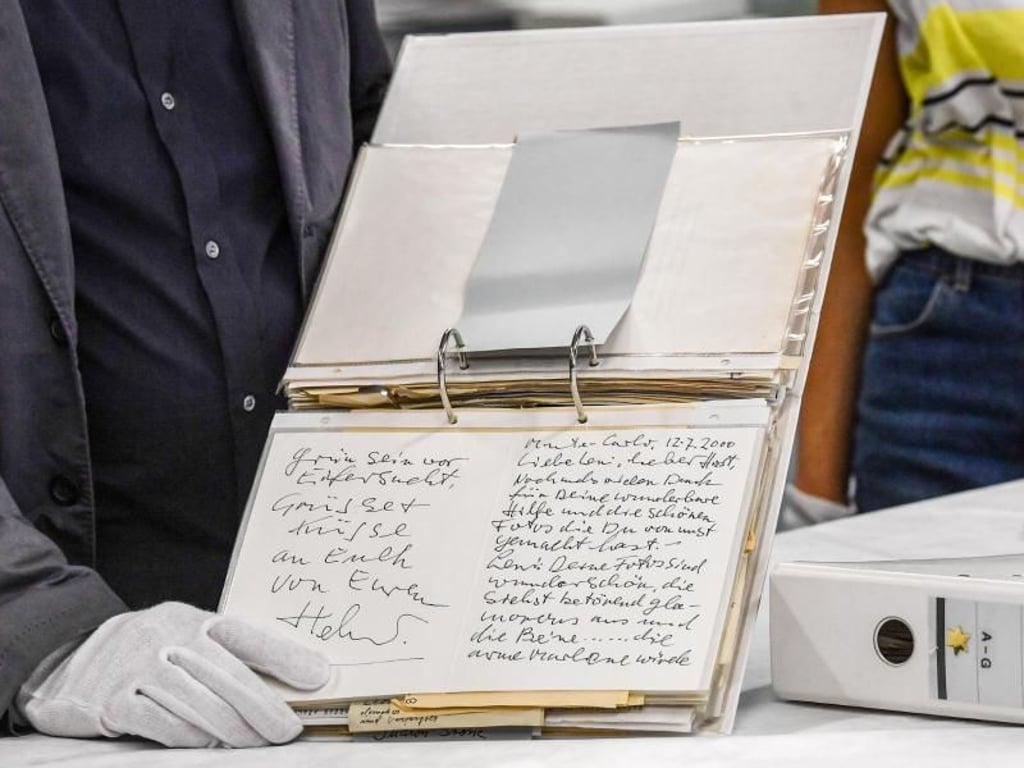 grün sein vor
Eifersucht,
Grüsse +
Küsse
an Euch
von Euren
Helmut.
Monte-Carlo, 12.7.2000
Liebe Leni, lieber Horst,
Nochmals vielen Dank
für Deine wunderbare
Hilfe und die schönen
Fotos die Du von uns
gemacht hast. –
Leni Deine Fotos sind
wunderschön, die
siehst betörend gla-
mourös aus und
die Beine ...... die
arme Marlene würde
und
Sharon Stone
A-G